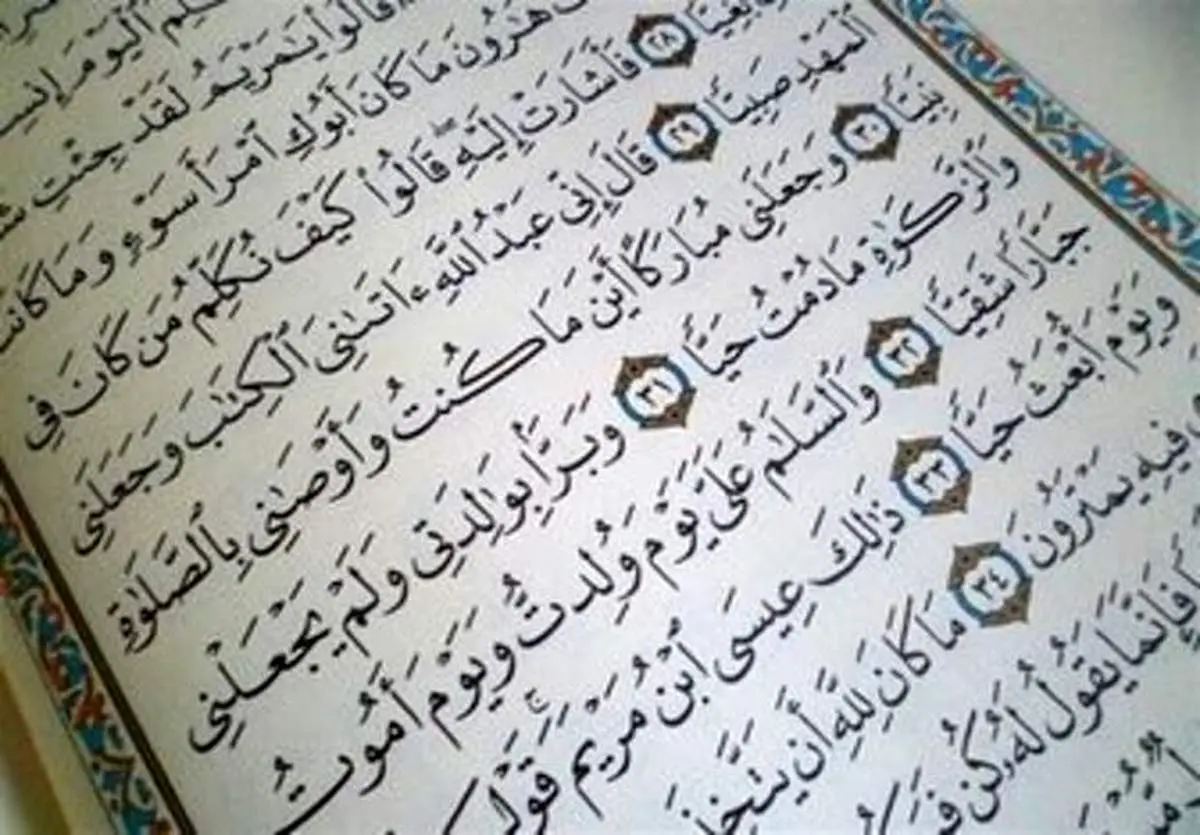 ٱلْيَوْمَ إِنسِيًّا
قَالُوا۟ يَٰمَرْيَمُ لَقَدْ جِئْتِ
هَٰرُونَ مَا كَانَ أَبُوكِ ٱمْرَأَ سَوْءٍ وَمَا كَانَتْ
بَغِيًّا ٢٨ فَأَشَارَتْ إِلَيْهِ قَالُوا۟ كَيْفَ نُكَلِّمُ مَن كَانَ فِى
ٱلْمَهْدِ صَبِيًّا ٢٩ قَالَ إِنِّى عَبْدُ ٱللَّهِ ءَاتَىٰنِىَ ٱلْكِتَٰبَ وَجَعَلَنِى
نَبِيًّا ٣٠ وَجَعَلَنِى مُبَارَكًا أَيْنَ مَا كُنتُ وَأَوْصَٰنِى بِٱلصَّلَوٰةِ
وَٱلزَّكَوٰةِ مَا دُمْتُ حَيًّا ٣١ وَبَرًّۢا بِوَٰلِدَتِى وَلَمْ يَجْعَلْنِى
جَبَّارًا شَقِيًّا ٣٢ وَٱلسَّلَٰمُ عَلَىَّ يَوْمَ وُلِدتُّ وَيَوْمَ أَمُوتُ
وَيَوْمَ أُبْعَثُ حَيًّا ٣٣ ذَٰلِكَ عِيسَى ٱبْنُ مَرْيَمَ قَوْلَ
فِيهِ يَمْتَرُونَ ٣٤ مَا كَانَ لِلَّهِ أَن يَتَّخِذَ
فَإِنَّمَا يَقُولُ لَهُۥ كُن